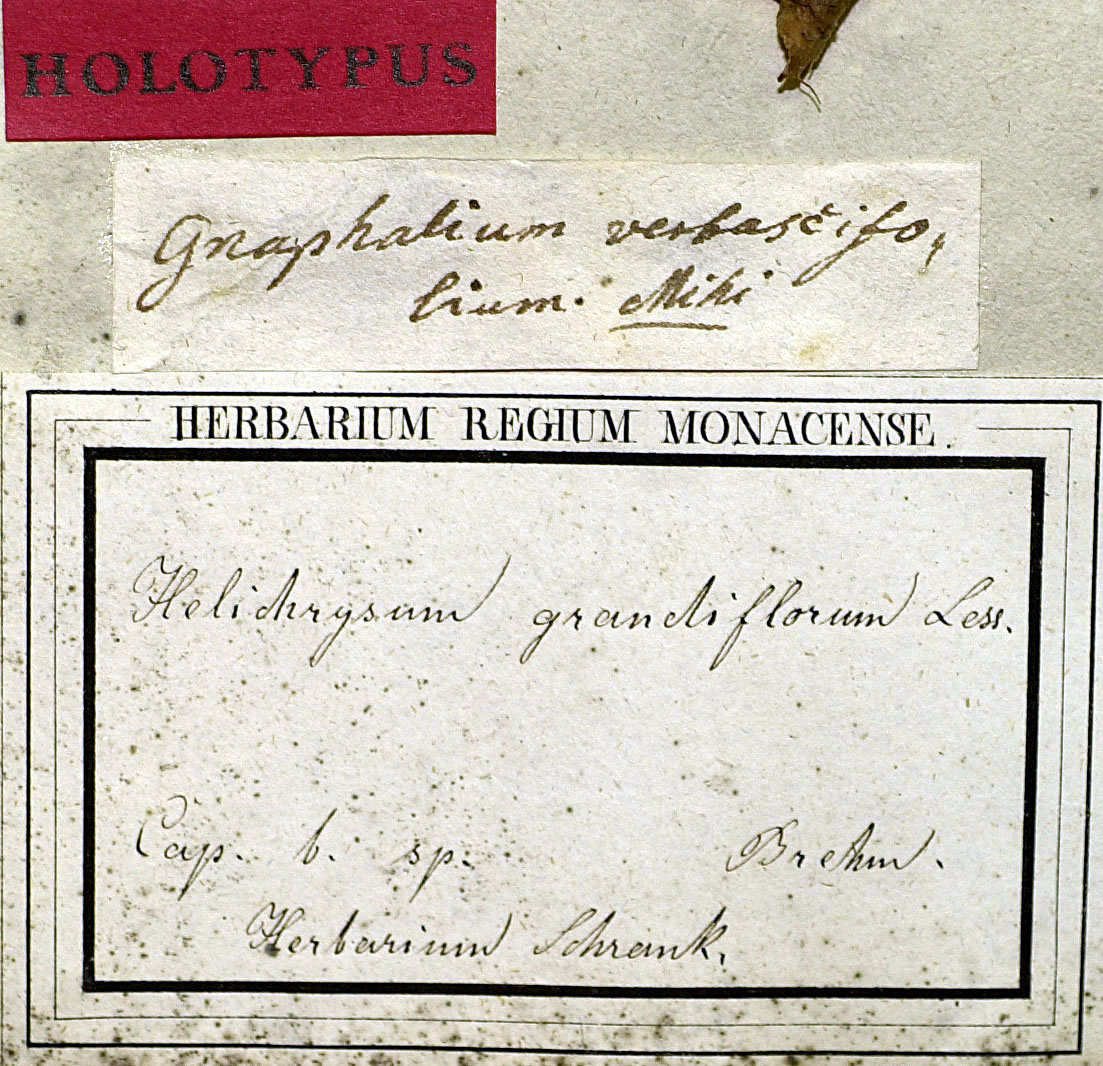 HOLOTYPUS
Gnaphalium verbascifo,
lium. Mihi
HERBARIUM REGIUM MONACENSE.
Helichrysum grandiflorum Less.
Cap. b. sp. Brehm.
Herbarium Schrank.